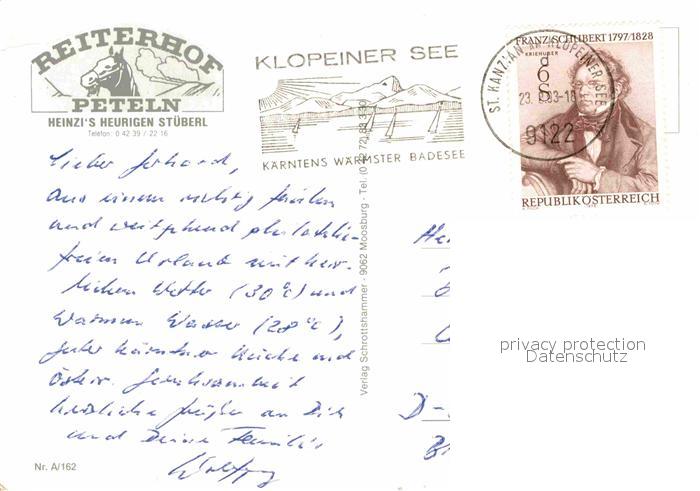 REITERHOF
PETELN
HEINZI'S HEURIGEN STÜBERL
Telefon: 0 42 39 / 22 16
KLOPEINER SEE
KÄRNTENS WÄRMSTER BADESEE
ST. KANZIAN AM KLOPEINER SEE
9122
FRANZ SCHUBERT 1797/1828
KRIEHUBER
6 S
REPUBLIK ÖSTERREICH
Lieber Gerhard,
aus einem richtig faulen
und weitgehend philatelie-
freien Urlaub mit herr-
lichem Wetter (30°C) und
warmem Wasser (28°C),
guter Kärntner Küche und
Österr. Gemütlichkeit
herzliche Grüße an Dich
und Deine Familie
Wolfgang
Verlag Schrottshammer · 9062 Moosburg - Tel. (0 42 72) 83 3 90
D-
privacy protection
Datenschutz
Nr. A/162